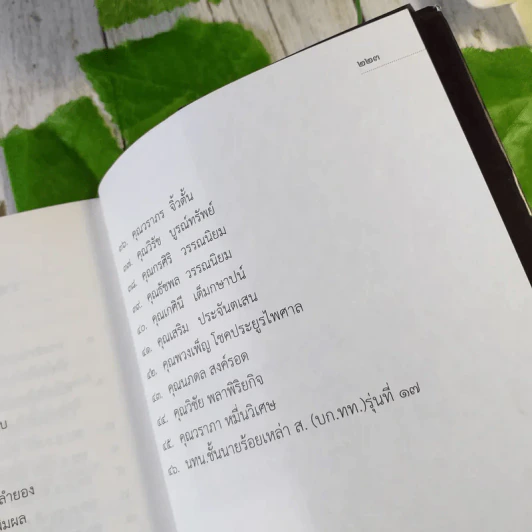 ๒๒๓
๓๖. คุณวราภร จิ้วตั้น
๓๗. คุณวิรัช บูรณ์ทรัพย์
๓๘. คุณกรศิริ วรรณนิยม
๓๙. คุณธัชพล วรรณนิยม
๔๐. คุณเกศินี เต็มกษาปน์
๔๑. คุณเสริม ประจันตเสน
๔๒. คุณพวงเพ็ญ โชคประยูรไพศาล
๔๓. คุณนภดล สงค์รอด
๔๔. คุณวิชัย พลาพิริยกิจ
๔๕. คุณวราภา หมื่นวิเศษ
๔๖. นทน.ชั้นนายร้อยเหล่า ส. (บก.ทท.)รุ่นที่ ๑๗